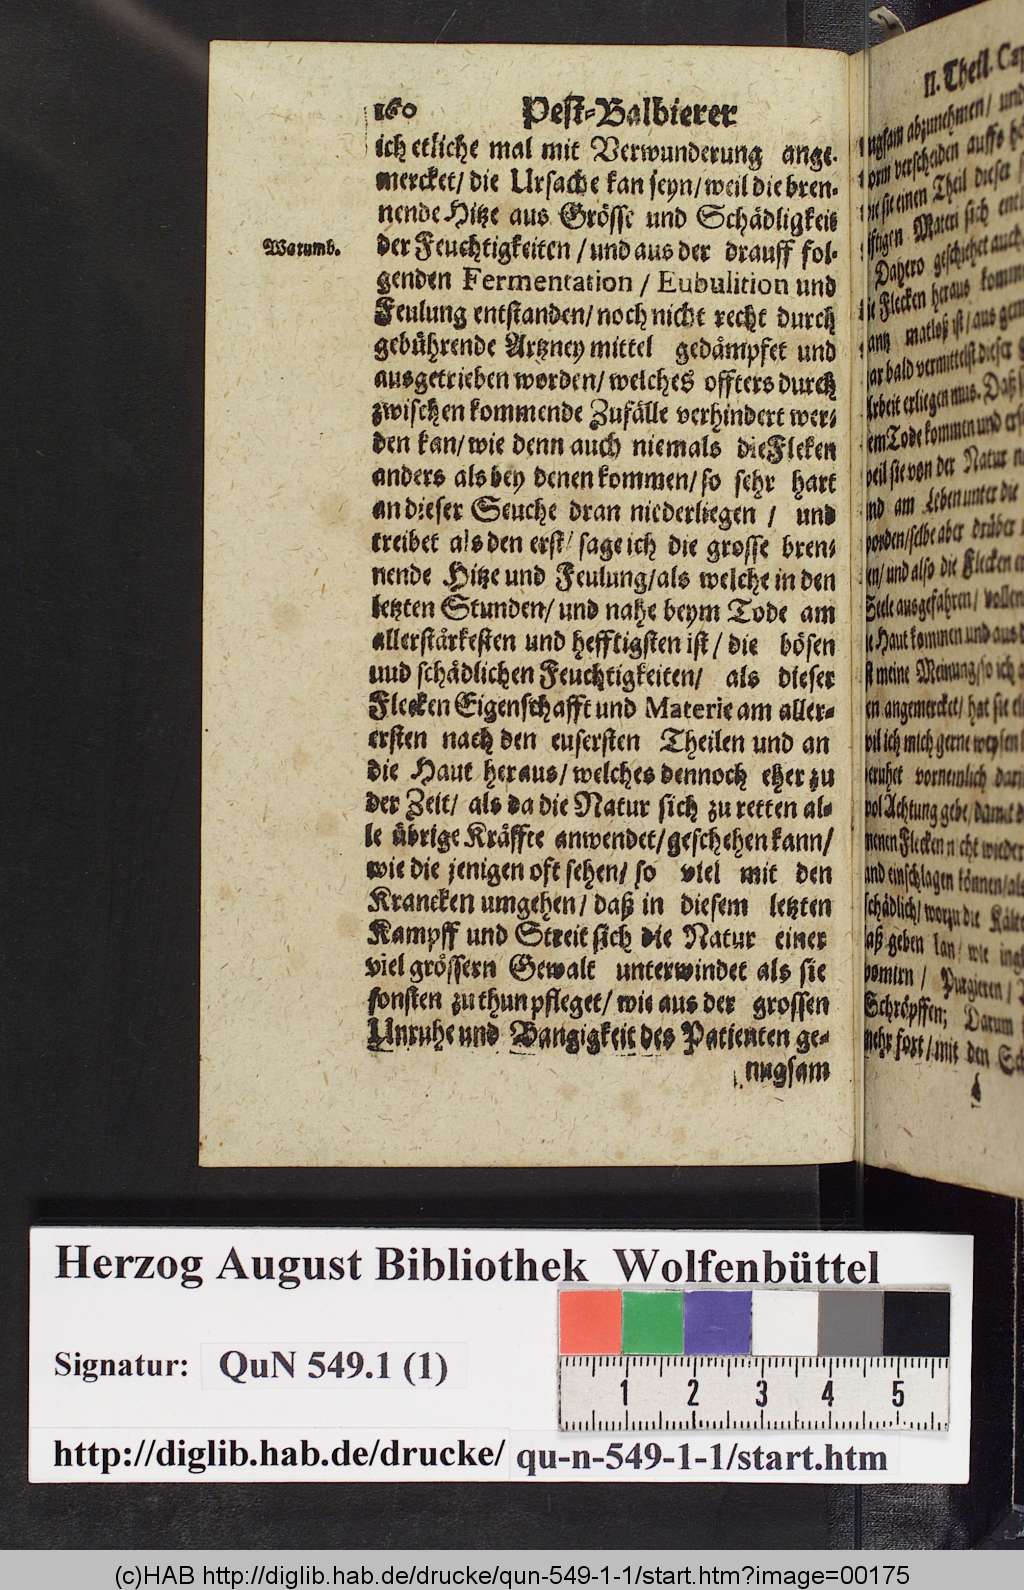 160 Pest-Balbierer
ich etliche mal mit Verwunderung ange-
mercket/ die Ursache kan seyn/ weil die bren-
nende Hitze aus Grösse und Schädligkeit
Warumb.
der Feuchtigkeiten / und aus der drauff fol-
genden Fermentation / Eubulition und
Feulung entstanden/ noch nicht recht durch
gebührende Artzney mittel gedämpfet und
ausgetrieben worden/ welches offters durch
zwischen kommende Zufälle verhindert wer-
den kan/ wie denn auch niemals die Fleken
anders als bey denen kommen/ so sehr hart
an dieser Seuche dran niederliegen / und
treibet als den erst/ sage ich die grosse bren-
nende Hitze und Feulung/ als welche in den
letzten Stunden/ und nahe beym Tode am
allerstärkesten und hefftigsten ist/ die bösen
uud schädlichen Feuchtigkeiten/ als dieser
Flecken Eigenschafft und Materie am aller-
ersten nach den eusersten Theilen und an
die Haut heraus/ welches dennoch eher zu
der Zeit/ als da die Natur sich zu retten al-
le übrige Kräffte anwendet/ geschehen kann/
wie die jenigen oft sehen/ so viel mit den
Krancken umgehen/ daß in diesem letzten
Kampff und Streit sich die Natur einer
viel grössern Gewalt unterwindet als sie
sonsten zu thun pfleget/ wie aus der grossen
Unruhe und Bangigkeit des Patienten ge-
nugsam
II. Theil. Cap
ugsam abzunehmen/ und
orm verscheiden auffs
sie einen Theil dieser
fftigen Materi sich
Dahero geschiehet auch
ie Flecken heraus
antz matloß ist/ aus
ar bald vermittelst dieser
Arbeit erliegen mus. Daß
em Tode kommen und
weil sie von der Natur
nd am Leben unter die
worden/ selbe aber drüber
en/ und also die Flecken
Seele ausgefahren/
ie Haut kommen und aus
st meine Meinung/ so ich
en angemercket/ hat sie
wil ich mich gerne weysen
beruhet vornemlich
wol Achtung gebe/ damit
nenen Flecken nicht wieder
und einschlagen können/ als
schädlich/ worzu die Kälte
aß geben kan/ wie
vomirn / Purgieren/
Schröpffen; Darum
mehr fort/ mit den
Herzog August Bibliothek Wolfenbüttel
Signatur: QuN 549.1 (1)
1 2 3 4 5
http://diglib.hab.de/drucke/ qu-n-549-1-1/start.htm
(c)HAB http://diglib.hab.de/drucke/qun-549-1-1/start.htm?image=00175